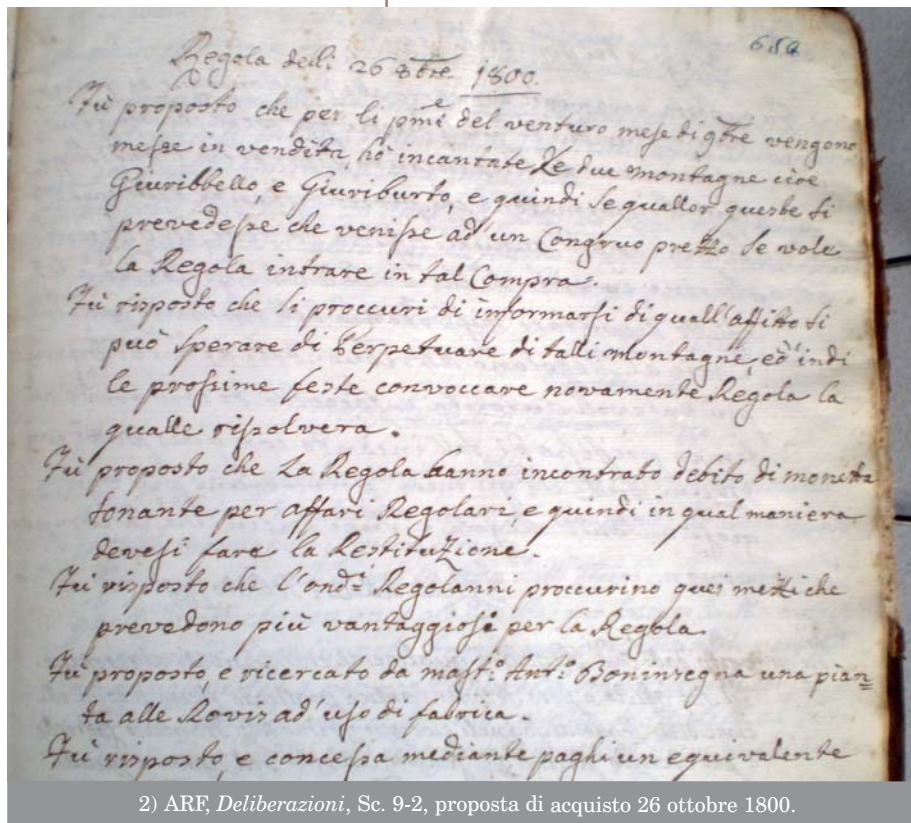 652
Regola delli 26 8bre 1800.
Fù proposto che per li pmi del venturo mese di 9bre vengono
messe in vendita, hò incantate le due montagne cioe
Giuribbello, e Giuriburto, e quindi se quallor queste si
prevedesse che venisse ad un Congruo prezzo se vole
la Regola intrare in tal Compra.
Fù risposto che si proccuri di informarsi di quall'affitto si
può sperare di Perpetuare di talli montagne, ed indi
le prossime feste convoccare novamente Regola la
qualle rissolvera.
Fù proposto che La Regola hanno incontrato debito di monetta
sonante per affari Regolari, e quindi in qual maniera
devesi fare la Restituzione.
Fù risposto che l'ondi Regolanni proccurino quei mezzi che
prevedono più vantaggiosi per la Regola.
Fù proposto, e ricercato da masto: Anto: Boninsegna una pian=
ta alle Rovis ad'uso di fabrica.
Fù risposto, e concessa mediante paghi un equivalente
2) ARF, Deliberazioni, Sc. 9-2, proposta di acquisto 26 ottobre 1800.